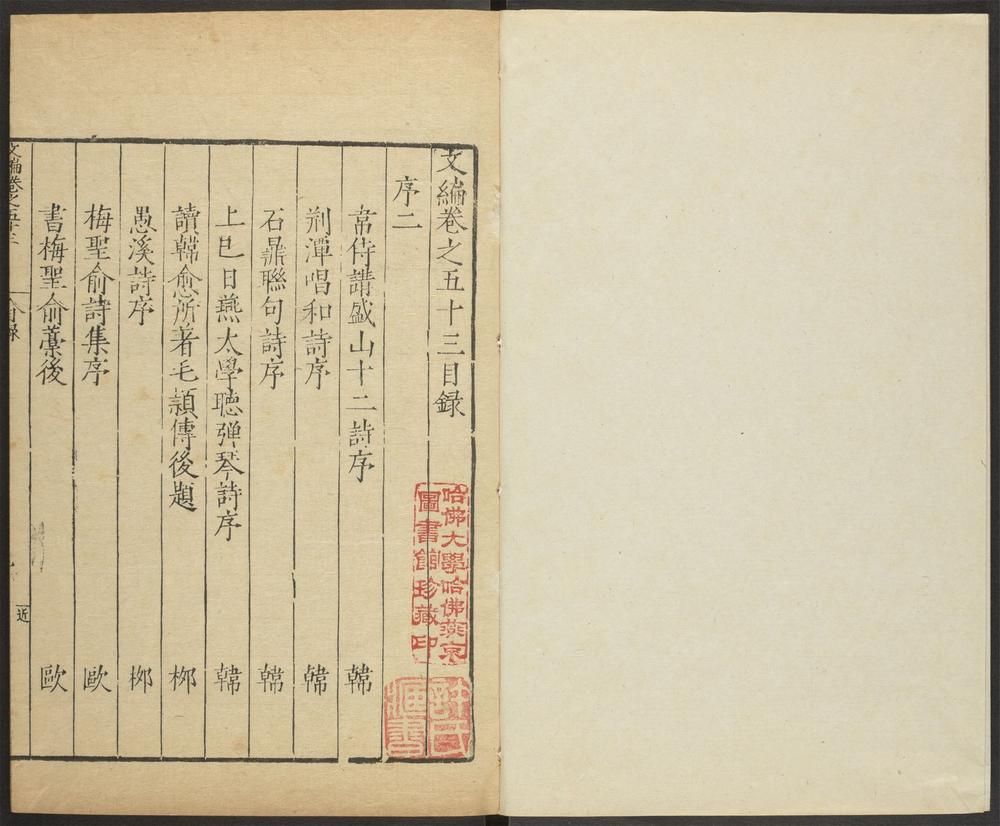 文編卷之五十三目録
序二
韋侍講盛山十二詩序 韓
荆潭唱和詩序 韓
石鼎聯句詩序 韓
上巳日燕太學聽彈琴詩序 韓
讀韓愈所著毛頴傳後題 栁
愚溪詩序 栁
梅聖俞詩集序 歐
書梅聖俞藁後 歐
文編卷之五十三 目録
近
哈佛大學哈佛燕京
圖書館珍藏印